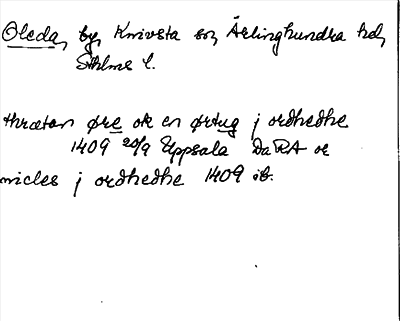 Oleda, by, Knivsta sn, Ärlinghundra hd,
Sthlms l.
thrætan øre ok en ørtug j ordhedhe
1409 20/9 Uppsala DaRA or
nicles j ordhedhe 1409 ib.